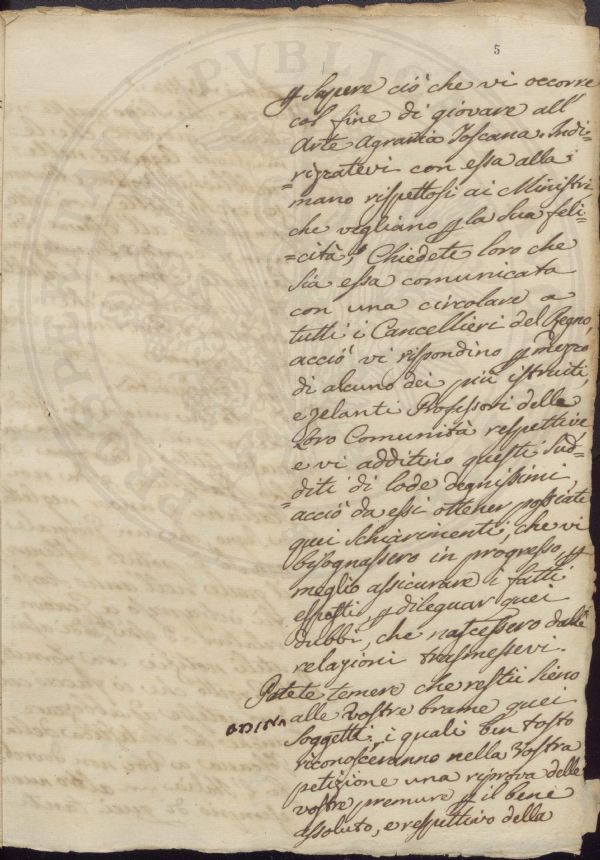 5
ꝑ Sapere ciò che vi occorre
col fine di giovare all'
Arte Agraria Toscana. Indi=
=rizzatevi con essa alla
mano rispettosi ai Ministri
che vegliano ꝑ la sua feli=
=cità, Chiedete loro che
sia essa comunicata
con una circolare a
tutti i Cancellieri del Regno,
acciò vi rispondino ꝑ mezzo
di alcuno dei più istruiti,
e zelanti Professori delle
loro Comunità respettive,
e vi additino questi Sud=
=diti di lode degnissimi,
acciò da essi ottener possiate
quei schiarimenti, che vi
bisognassero in progresso, ꝑ
meglio assicurare i fatti
esposti, ꝑ dileguar quei
dubbi, che nascessero dalle
relazioni trasmessevi.
Potete temere che restii sieno
alle vostre brame quei
Soggetti, i quali ben tosto
riconosceranno nella vostra
petizione una riprova delle
vostre premure ꝑ il bene
assoluto, e respettivo della